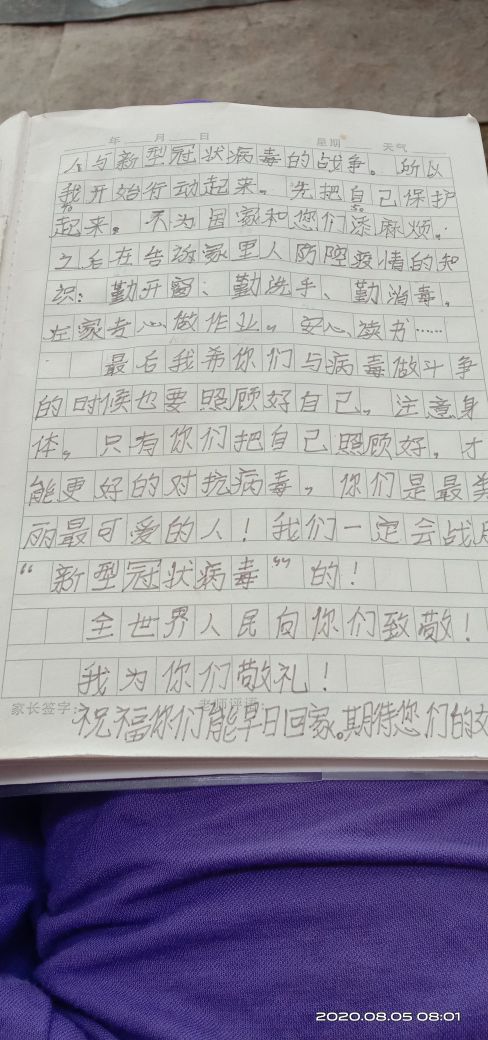 年 月 日 星期 天气
人与新型冠状病毒的战争。所以
我开始行动起来。先把自己保护
起来。不为国家和您们添麻烦。
之后在告诉家里人防控疫情的知
识：勤开窗、勤洗手、勤消毒，
在家专心做作业。安心读书……
最后我希你们与病毒做斗争
的时候也要照顾好自己。注意身
体。只有你们把自己照顾好，才
能更好的对抗病毒。你们是最美
丽最可爱的人！我们一定会战胜
“新型冠状病毒”的！
全世界人民向你们致敬！
我为你们敬礼！
家长签字： 老师评语：
祝福你们能早日回家。期待您们的
2020.08.05 08:01